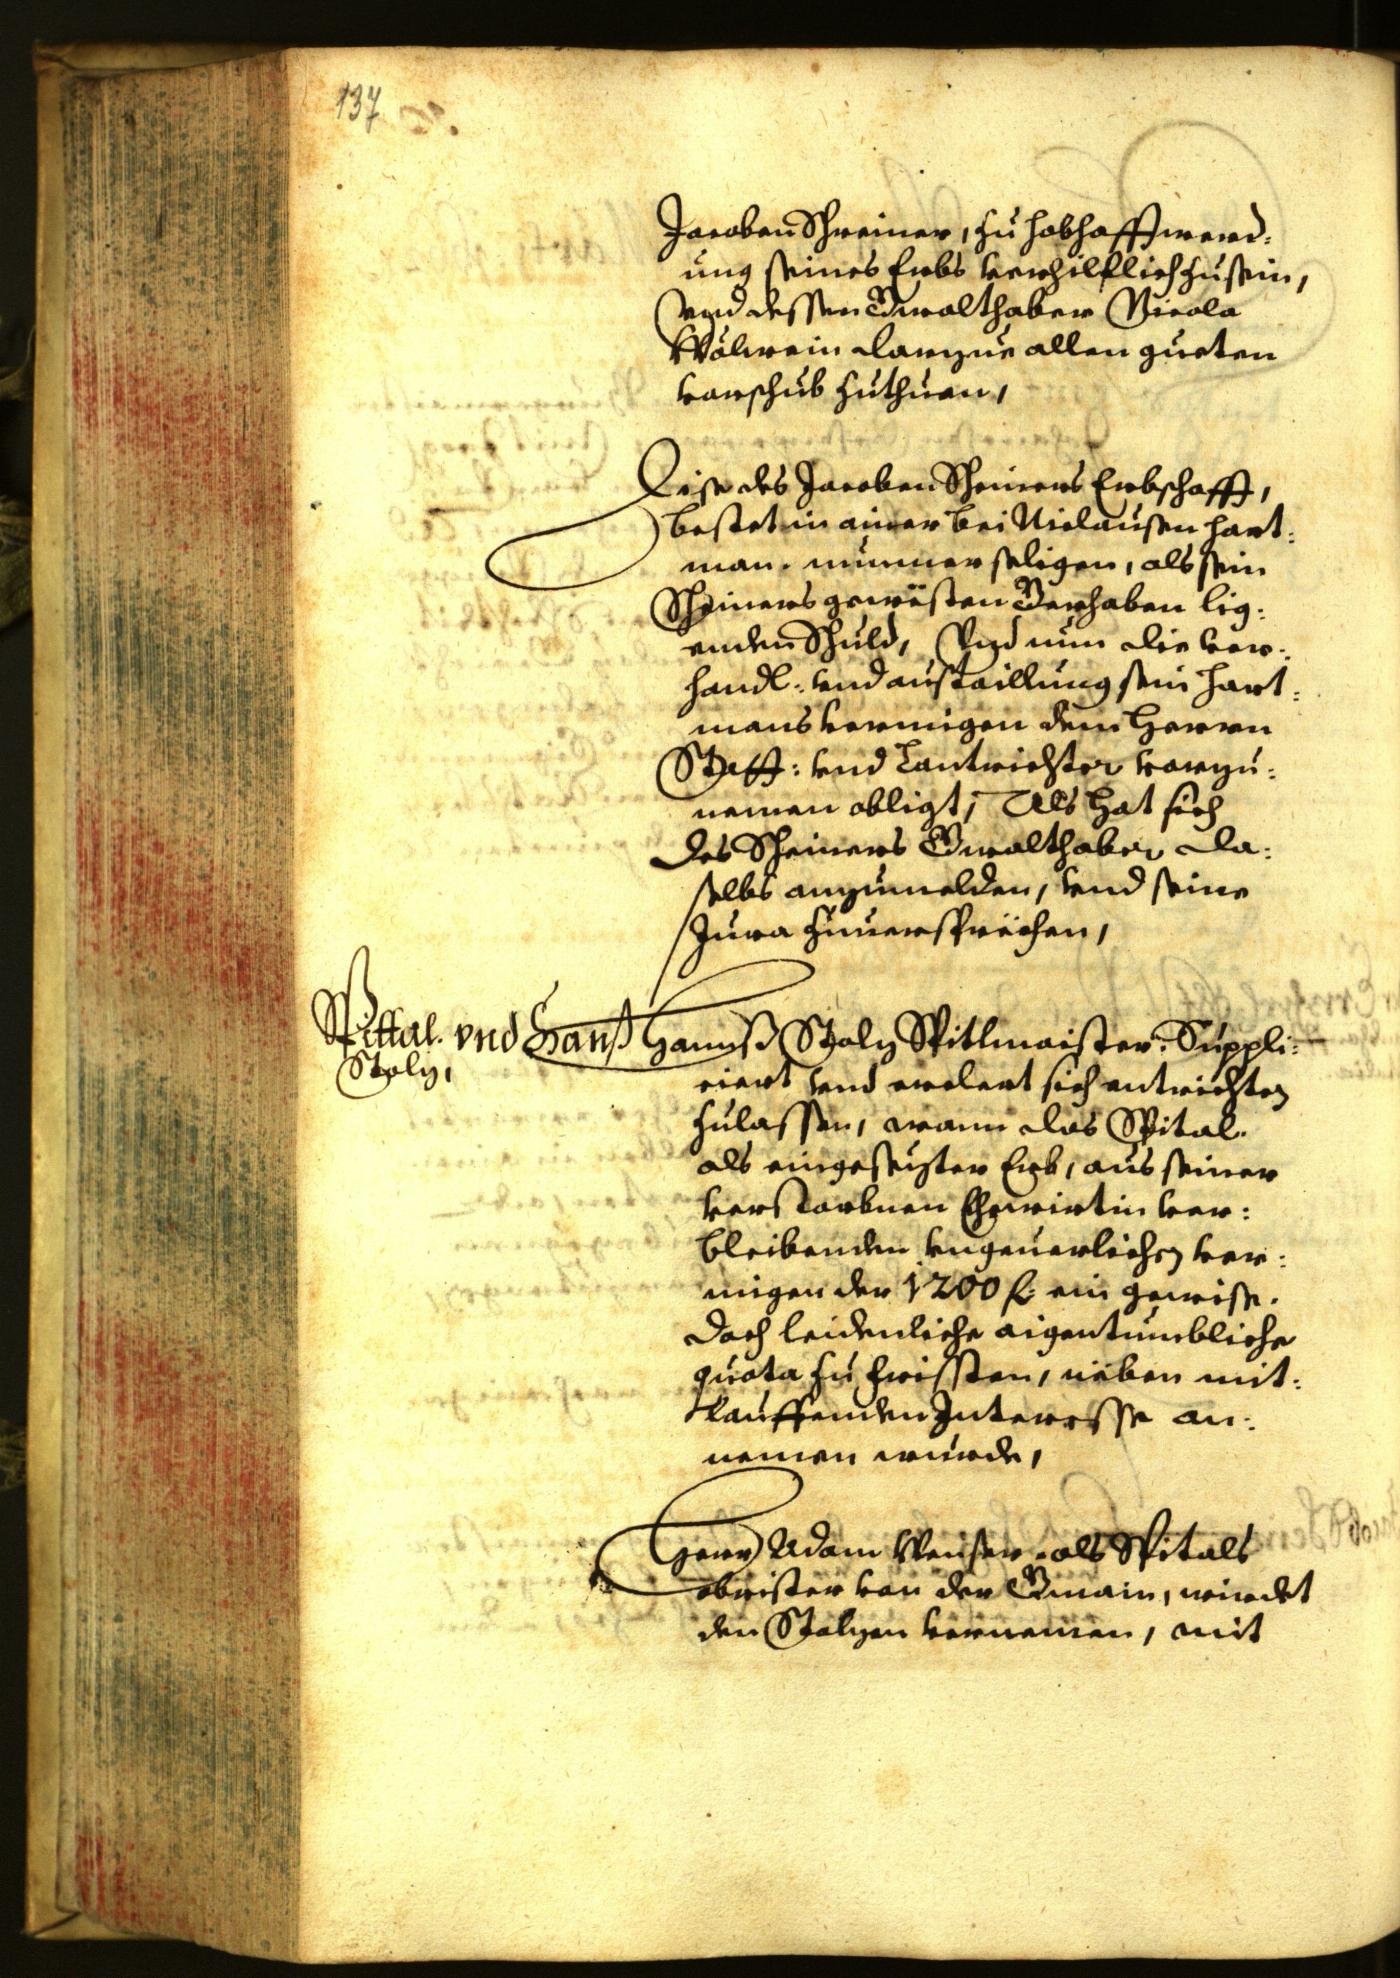 137
Jacoben Schreiner, zu habhafft werd:
ung seines Erbs verhilflich zusein,
Vnd dessen Gwalthaber Nicola
Wölwein darzue allen gueten
vorschub zuthuen,
Dise des Jacoben Schreiners Erbschafft,
bestet in ainer bei Niclausen Hart:
man. nunmer seligen, als sein
Schreiners gewësten Gerhaben lig:
enden Schuld, Vnd nun die ver:
handl: vnd austaillung sein Hart:
mans vermigen dem Herrn
Statt: vnd Lantrichter vorzu:
nemen obligt, Als hat sich
des Schreiners Gwalthaber da:
selbs anzumelden, vnd seine
Jura zuuersprëchen,
Spittal. vnd Hanß
Stolz,
Hannß Stolz Spitlmaister. Suppli:
ciert vnd erclert sich entrichten
zulassen, wann das Spital.
als eingesezter Erb, aus seiner
verstorbnen Ehewirtin ver:
bleibenden vngeuerlichen ver:
migen der 1200 f. ein gewise.
doch leidenliche aigentumbliche
quota zu fristen, nëben mit:
lauffenden Interesse an:
nemen wurde,
Herr Adam Weiser. als Spitals
obrister von der Gmain, wirdet
den Stolzen vernemen, mit